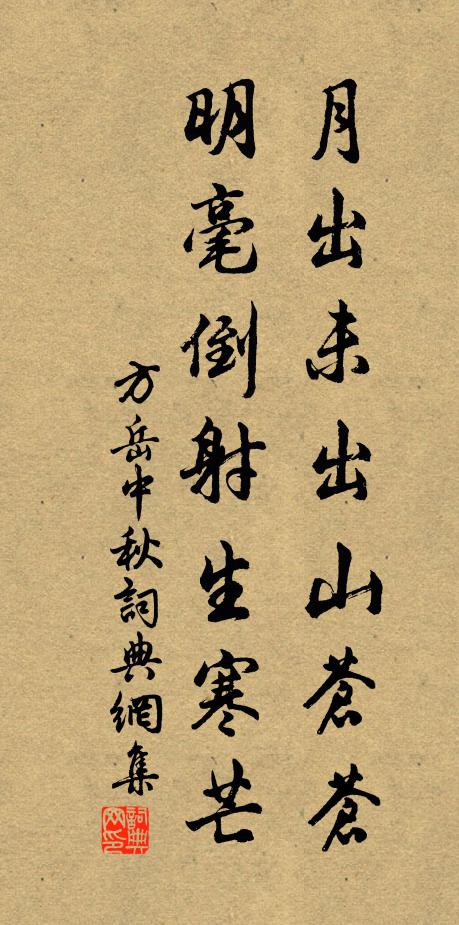 月出未出山蒼蒼
明毫倒射生寒芒
方岳中秋詞典網集
詞典網印